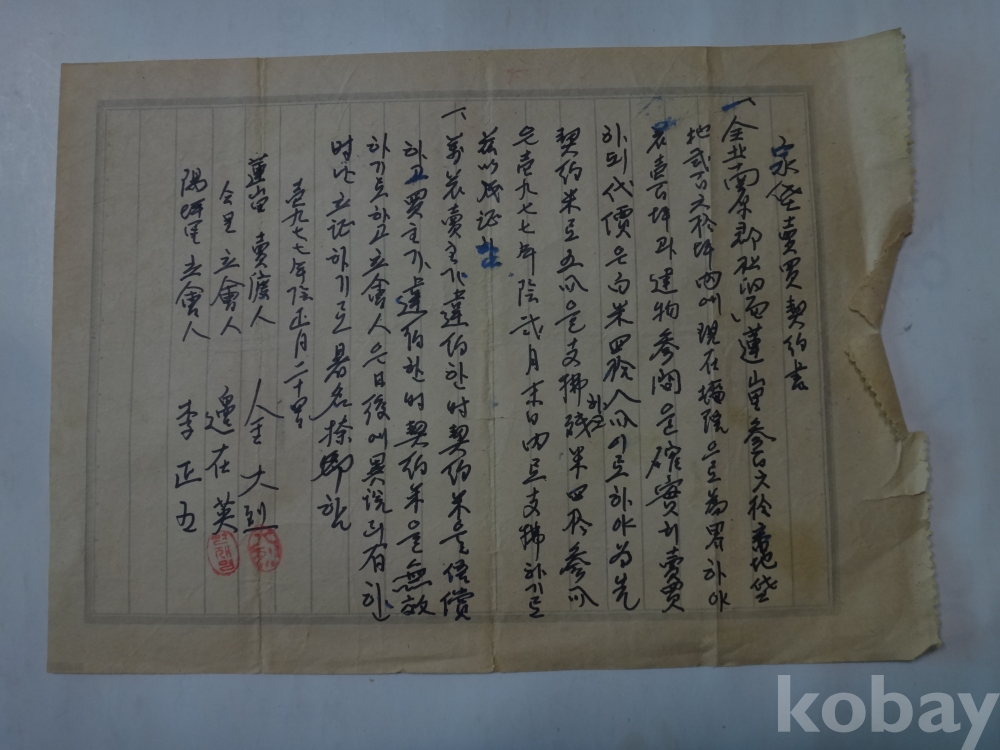 家垈賣買契約書
一、全北南原郡 面蓮山里 參百六拾 番地垈
地貳百六拾坪內에 現在 으로 爲界하야
壹百坪과 建物參間을 確實히 賣買
하되 代價은 白米四拾八叺이로 하야 爲先
契約米로 五叺을 支拂하고 殘米四拾參叺
은 壹九七七年 陰 貳月末日內로 支拂하기로
玆以成證함
一、萬若 賣主가 違約한 時 契約米을 倍償
하고 買主가 違約한 時 契約米을 無效
하기로 하고 立會人은 日後에 異說이 有한
時난 立証하기로 署名捺印함
壹九七七年陰正月二十 日
蓮山里 賣渡人 金大烈
仝里 立會人 邊在英
陽坪里 立會人 李正五
변재영
kobay